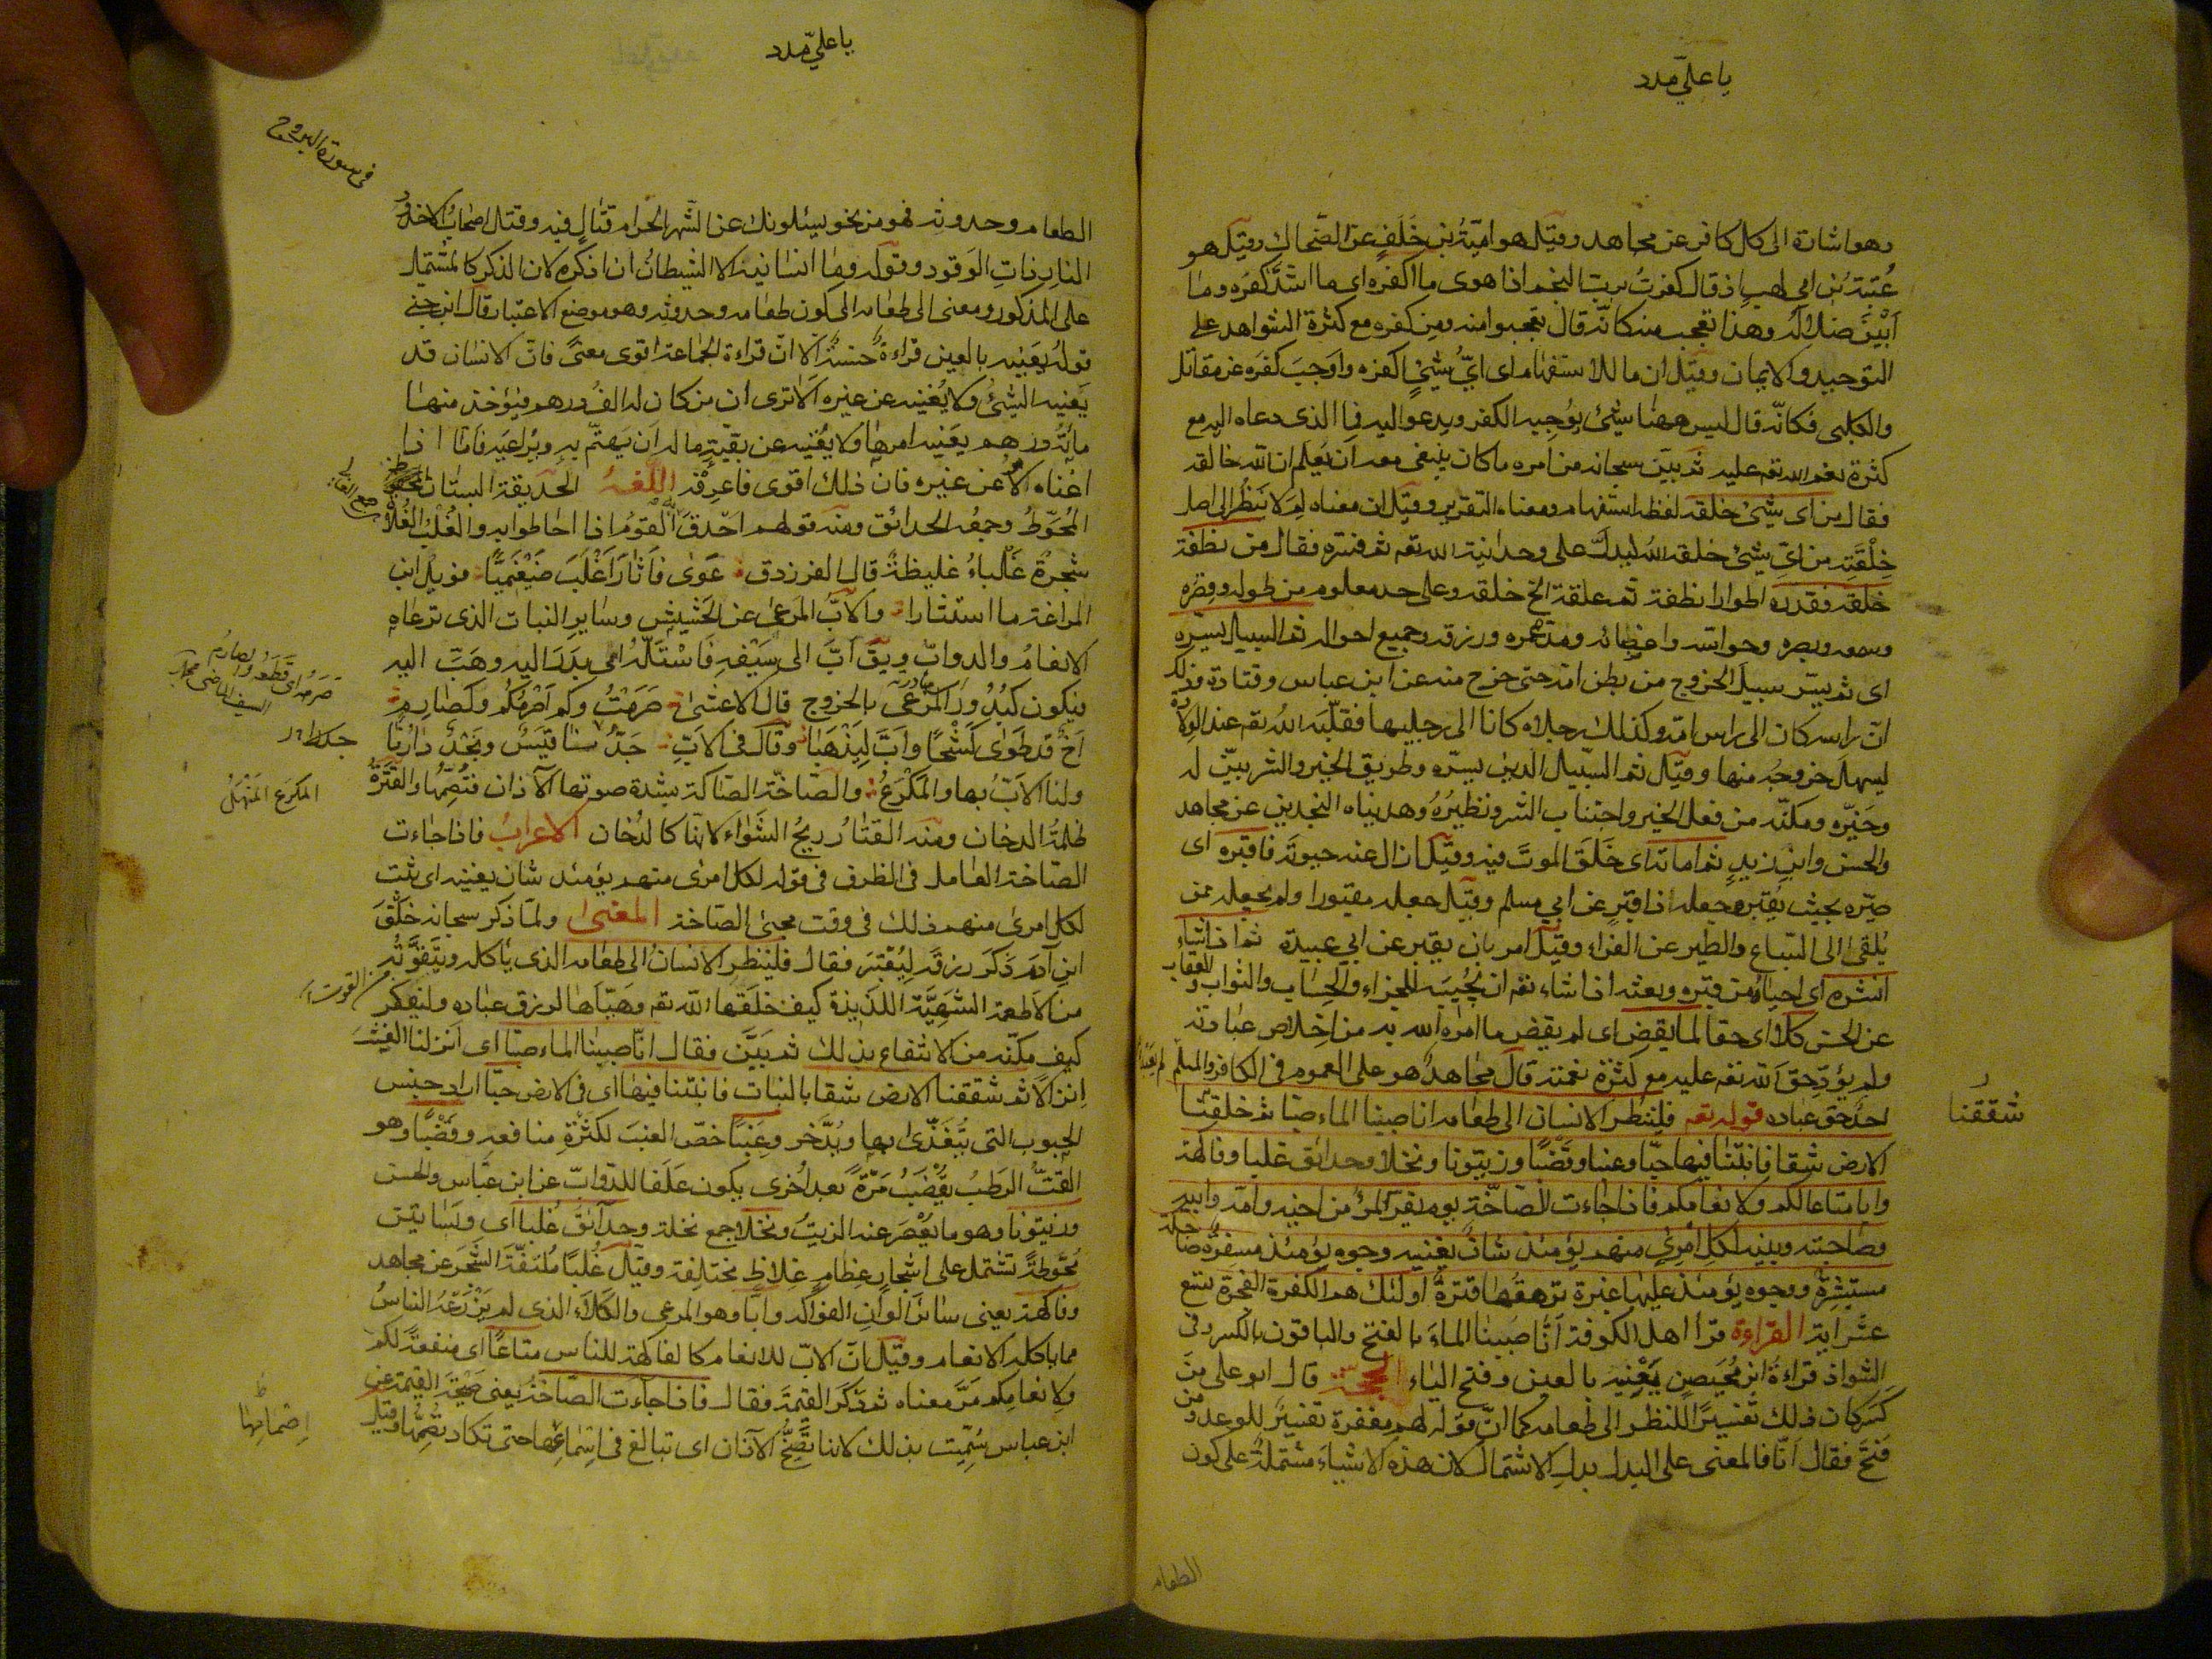 يا علي مدد
وهو اشارة الى كل كافر عن مجاهد وقيل هو امية بن خلف عن الضحاك وقيل هو
عتبة بن ابي لهب اذ قال كفرت برب النجم اذا هوى ما اكفره اى ما اشد كفره وما
ابين ضلاله وهذا تعجب منه كانه قال تعجبوا منه ومن كفره مع كثرة الشواهد على
التوحيد والايمان وقيل ان ما للاستفهام اى اى شيئ اكفره واوجب كفره عن مقاتل
والكلبى فكانه قال ليس ههنا شيئ يوجب الكفر ويدعو اليه فما الذى دعاه اليه مع
كثرة نعم الله تعه عليه ثم بين سبحانه من امره ما كان ينبغى معه ان يعلم ان الله خالقه
فقال من اى شيئ خلقه لفظه استفهام ومعناه التقرير وقيل ان معناه لم لا ينظر الى اصل
خلقته من اى شيئ خلقه الله ليدله على وحدانية الله تعه ثم فسره فقال من نطفة
خلقه فقدره اطوارا نطفة ثم علقة الى اخر خلقه وعلى حد معلوم من طوله وقصره
وسمعه وبصره وحواسه واعضائه ومدة عمره ورزقه وجميع احواله ثم السبيل يسره
اى ثم يسر سبيل الخروج من بطن امه حتى خرج منه عن ابن عباس وقتادة وذلك
ان راسه كان الى راس امه وكذلك رجلاه كانا الى رجليها فقلبه الله تعه عند الولادة
ليسهل خروجه منها وقيل ثم السبيل الدين يسره وطريق الخير والشر بين له
وخيره ومكنه من فعل الخير واجتناب الشر ونظيره وهديناه النجدين عن مجاهد
والحسن وابن زيد ثم اماته اى خلق الموت فيه وقيل ازال عنه حيوته فاقبره اى
صيره بحيث يقبر وجعله ذا قبر عن ابي مسلم وقيل جعله مقبورا ولم يجعله ممن
يلقى الى السباع والطير عن الفراء وقيل امر بان يقبر عن ابي عبيدة ثم اذا شاء
انشره اى احياه من قبره وبعثه اذا شاء تعه ان يحييه للجزاء والحساب والثواب والعقاب
عن الحسن كلا اى حقا لما يقض اى لم يقض ما امره الله به من اخلاص عبادته
ولم يؤد حق الله تعه عليه مع كثرة نعمته قال مجاهد هو على العموم فى الكافر والمسلم لم يعبده
احد حق عباده قوله تعه فلينظر الانسان الى طعامه انا صببنا الماء صبا ثم خلقنا
شققنا
الارض شقا فانبتنا فيها حبا وعنبا وقضبا وزيتونا ونخلا وحدائق غلبا وفاكهة
وابا متاعا لكم ولانعامكم فاذا جاءت الصاخة يوم يفر المرء من اخيه وامه وابيه
وصاحبته وبنيه لكل امرئ منهم يومئذ شان يغنيه وجوه يومئذ مسفرة ضاحكة
مستبشرة ووجوه يومئذ عليها غبرة ترهقها قترة اولئك هم الكفرة الفجرة تسع
عشر اية القراءة قرا اهل الكوفة انا صببنا الماء بالفتح والباقون بالكسر وفى
الشواذ قراءة ابن محيصن يعنيه بالعين وفتح الياء الحجة قال ابو على من
كسر كان ذلك تفسيرا للنظر الى طعامه كما ان قوله لهم مغفرة تفسير للوعد ومن
فتح فقال انا فالمعنى على البدل بدل الاشتمال لان هذه الاشياء مشتملة على كون
الطعام
يا علي مدد
فى سورة البروج
الطعام وحدوثه فهو من نحو يسئلونك عن الشهر الحرام قتال فيه وقتل اصحاب الاخدود
النار ذات الوقود وقوله وما انسانيه الا الشيطان ان اذكره لان الذكر كالمشتمل
على المذكور ومعنى الى طعامه الى كون طعامه وحدوثه وهو موضع الاعتبار قال ابن جنى
قوله يعنيه بالعين قراءة حسنة الا ان قراءة الجماعة اقوى معنى فان الانسان قد
يعنيه الشئ ولا يغنيه عن غيره الا ترى ان من كان له الف درهم فيؤخذ منها
مائة درهم يعنيه امرها ولا يغنيه عن بقية ماله ان يهتم به ويراعيه فاما اذا
اغناه الامر عن غيره فان ذلك اقوى فاعرفه اللغة الحديقة البستان
المحوط وجمعه الحدائق ومنه قولهم احدق القوم اذا احاطوا به والغلب الغلاظ
شجرة غلباء غليظة قال الفرزدق عوى فاثار اغلب ضيغميا فويل ابن
المراغة ما استثارا والاب المرعى عن الحشيش وساير النبات الذى ترعاه
الانعام والدواب ويق اب الى سيفه فاستله اى بدر اليه وهب اليه
فيكون كبدور المرعى بالخروج قال الاعشى صرمت ولم اصرمكم وكصارم
صرمه اى قطعه والصارم
السيف الماضى
اخ قد طوى كشحا واب ليذهبا وقال فى الاب جد نا قيس ونجد دارنا
ولنا الاب بها والمكرع والصاخة الصاكة بشدة صوتها الآذان فتصمها والقترة
المكرع المنهل
ظلمة الدخان ومنه القتار ريح الشواء لانها كالدخان الاعراب فاذا جاءت
الصاخة العامل فى الظرف فى قوله لكل امرئ منهم يومئذ شان يغنيه اى ثبت
لكل امرئ منهم ذلك فى وقت مجئ الصاخة المعنى ولما ذكر سبحانه خلق
ابن آدم ذكر رزقه ليعتبر فقال فلينظر الانسان الى طعامه الذى ياكله ويتقوته
من القوت
من الاطعمة الشهية اللذيذة كيف خلقها الله تعه وهياها لرزق عباده وليفكر
كيف مكنه من الانتفاع بذلك ثم بين فقال انا صببنا الماء صبا اى انزلنا الغيث
انزالا ثم شققنا الارض شقا بالنبات فانبتنا فيها اى فى الارض حبا اراد جنس
الحبوب التى يتغذى بها ويدخر وعنبا خص العنب لكثرة منافعه وقضبا وهو
القت الرطب يقضب مرة بعد اخرى يكون علفا للدواب عن ابن عباس والحسن
وزيتونا وهو ما يعصر عنه الزيت ونخلا جمع نخلة وحدائق غلبا اى وبساتين
محوطة تشتمل على اشجار عظام غلاظ مختلفة وقيل غلبا ملتفة الشجر عن مجاهد
وفاكهة يعنى سائر الوان الفواكه وابا وهو المرعى والكلاء الذى لم يزرعه الناس
مما ياكله الانعام وقيل ان الاب للانعام كالفاكهة للناس متاعا اى منفعة لكم
ولانعامكم مر معناه ثم ذكر القيمة فقال فاذا جاءت الصاخة يعنى صيحة القيمة عن
ابن عباس سميت بذلك لانها تصخ الآذان اى تبالغ فى اسماعها حتى تكاد تصمها وقيل
اصمامها